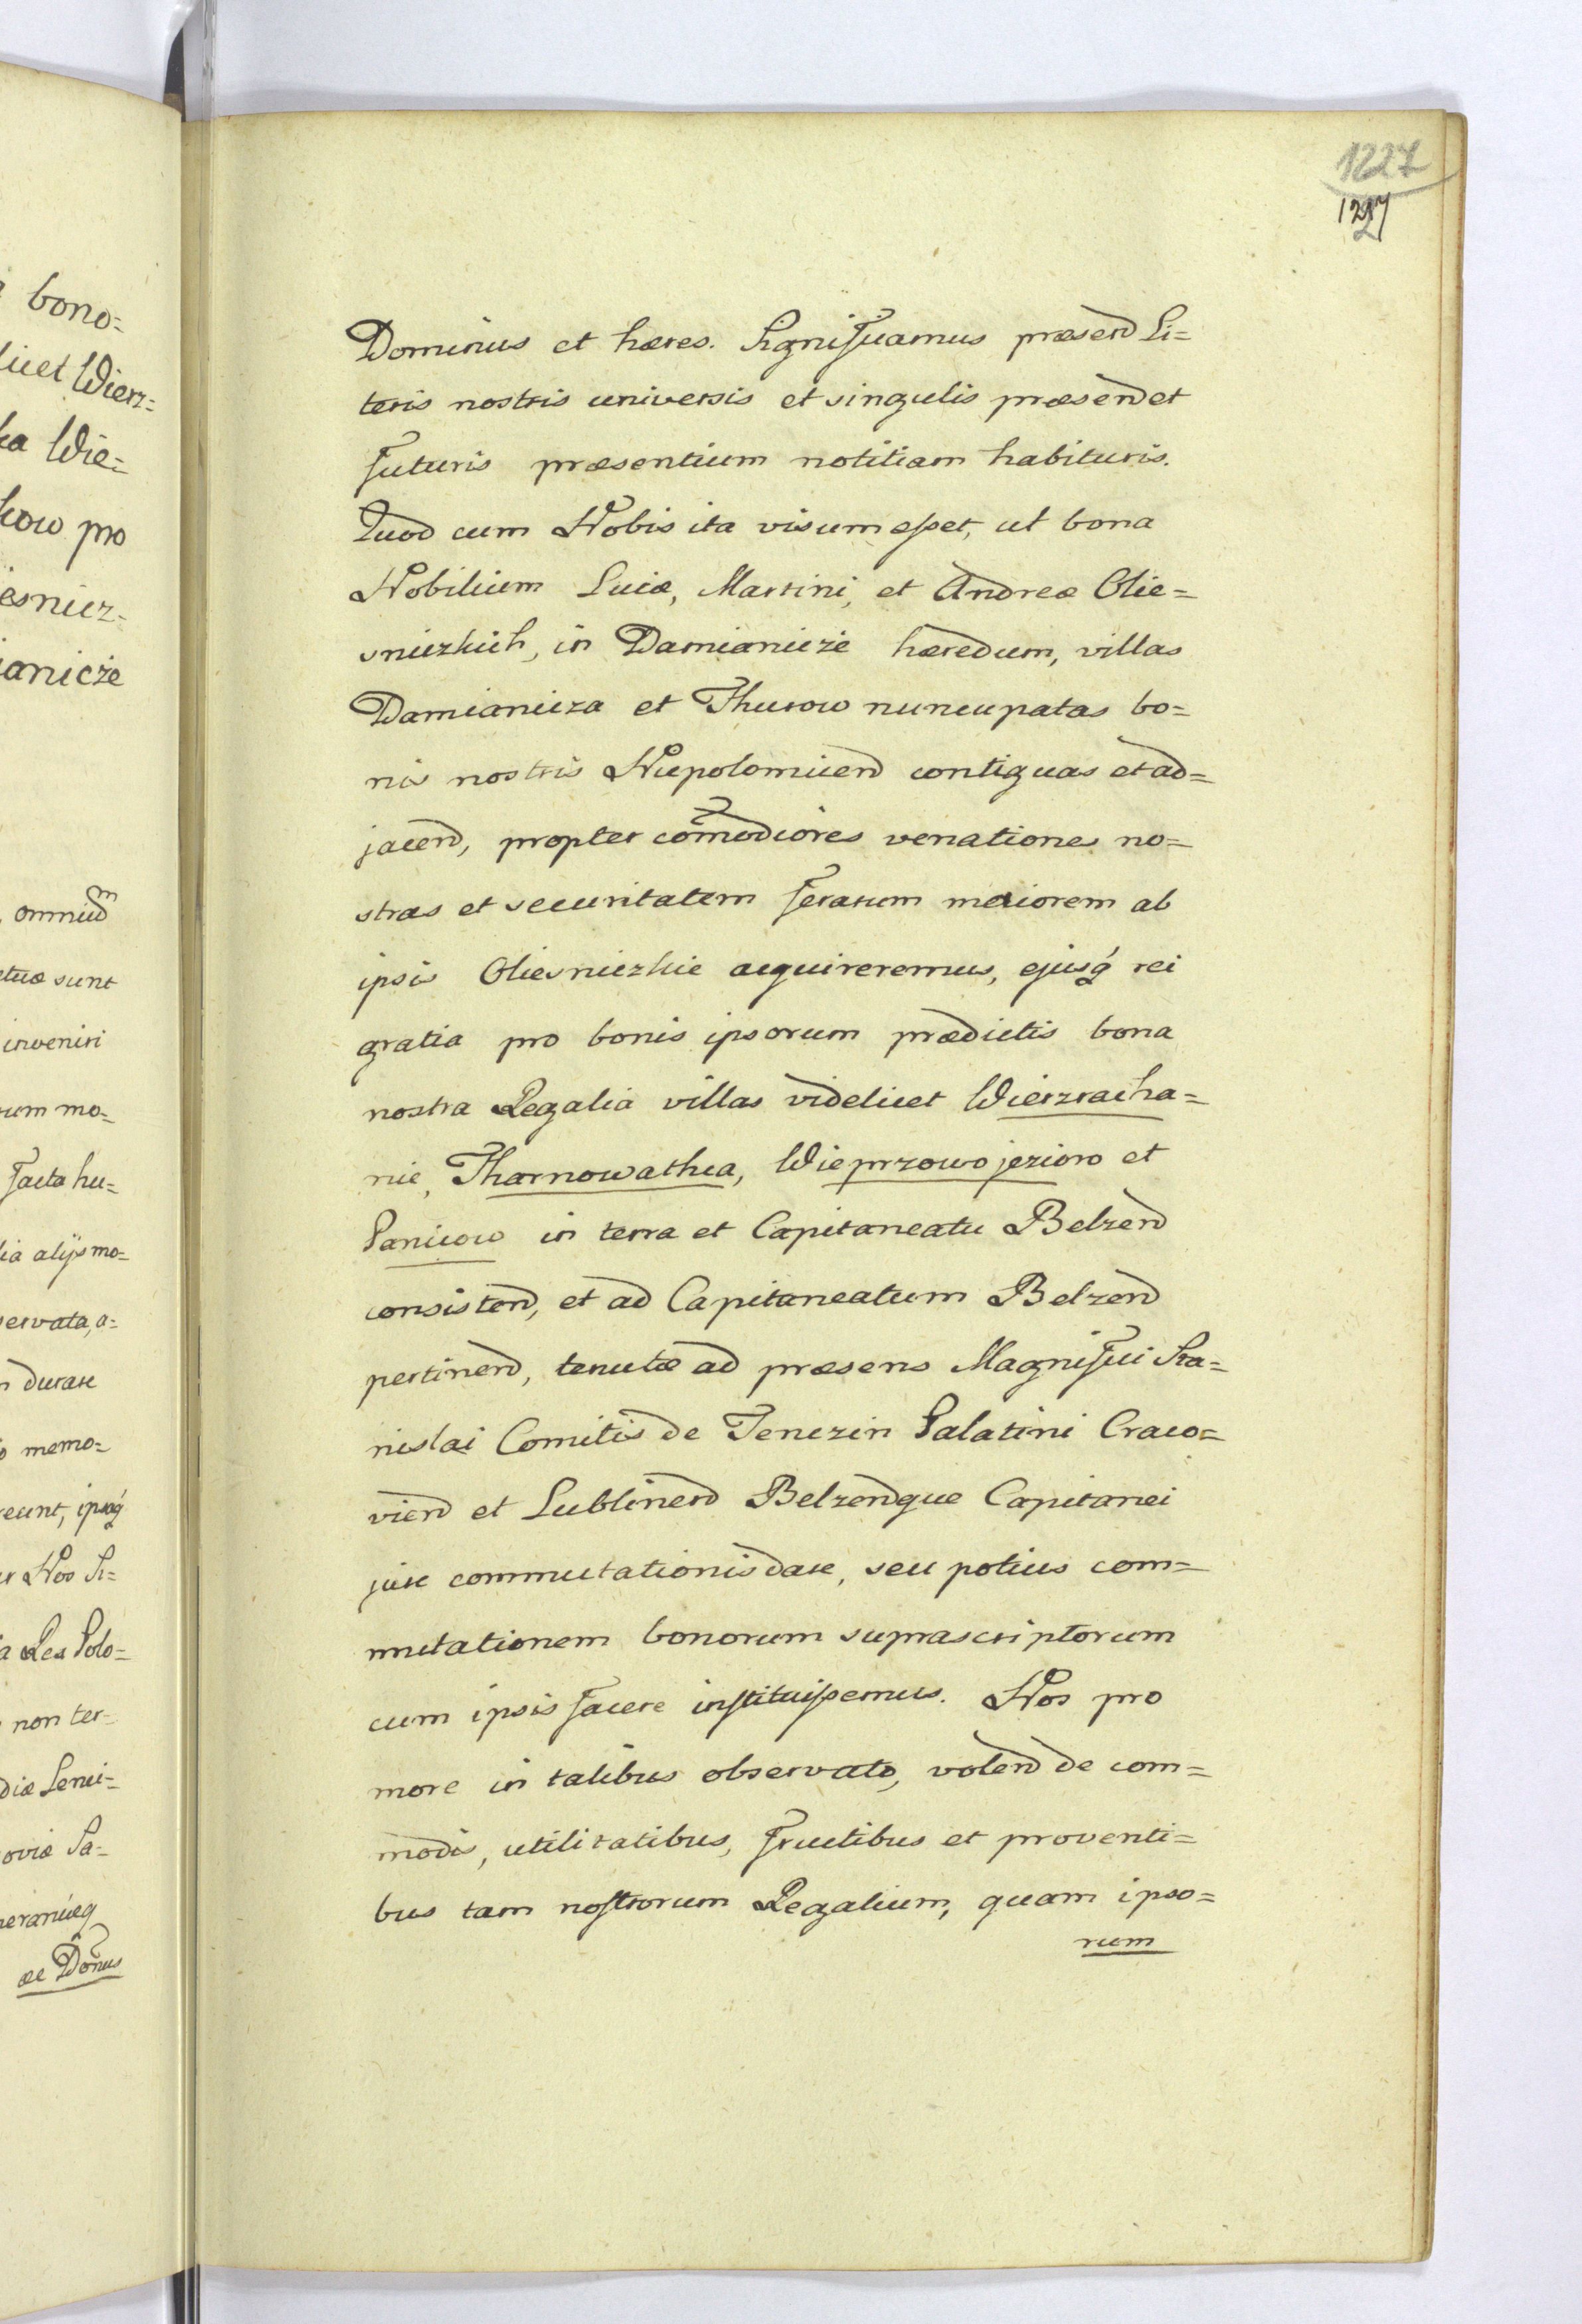 1227
1227
Dominus et hæres. Significamus præsend Li=
teris nostris universis et singulis præsend et
futuris præsentium notitiam habituris.
Quod cum Nobis ita visum esset, ut bona
Nobilium Lucæ, Martini, et Andreæ Olie=
sniczkich, in Damianicze hæredum, villas
Damianicza et Thurow nuncupatas bo=
nis nostris Niepolomicend contiguas et ad=
jacend, propter com̃odiores venationes no=
stras et securitatem ferarum maiorem ab
ipsis Oliesniczkie acquireremus, ejusq́ rei
gratia pro bonis ipsorum prædictis bona
nostra Regalia villas videlicet Wierzracha=
nie, Tharnowathca, Wieprzowo jezioro et
Panicow in terra et Capitaneatu Belzend
consistend, et ad Capitaneatum Belzend
pertinend, tenutæ ad præsens Magnifici Sta=
nislai Comitis de Tenczin Palatini Craco=
viend et Lublinend Belzendque Capitanei
jure commutationis dare, seu potius com=
mutationem bonorum suprascriptorum
cum ipsis facere instituissemus. Nos pro
more in talibus observato, volend de com=
modis, utilitatibus, fructibus et proventi=
bus tam nostrorum Regalium, quam ipso=
rum
bono=
licet Wierz=
ca Wie=
kow pro
esnicz=
ianicze
omniu͂m
etuæ sunt
inveniri
rum mo=
facta hu=
lia alijs mo=
servata, a=
durare
memo=
reunt, ipsaq́
Nos Si=
Rex Polo=
non ter=
diæ Senei=
oviæ Sa=
neranieq
ac Dom̃us